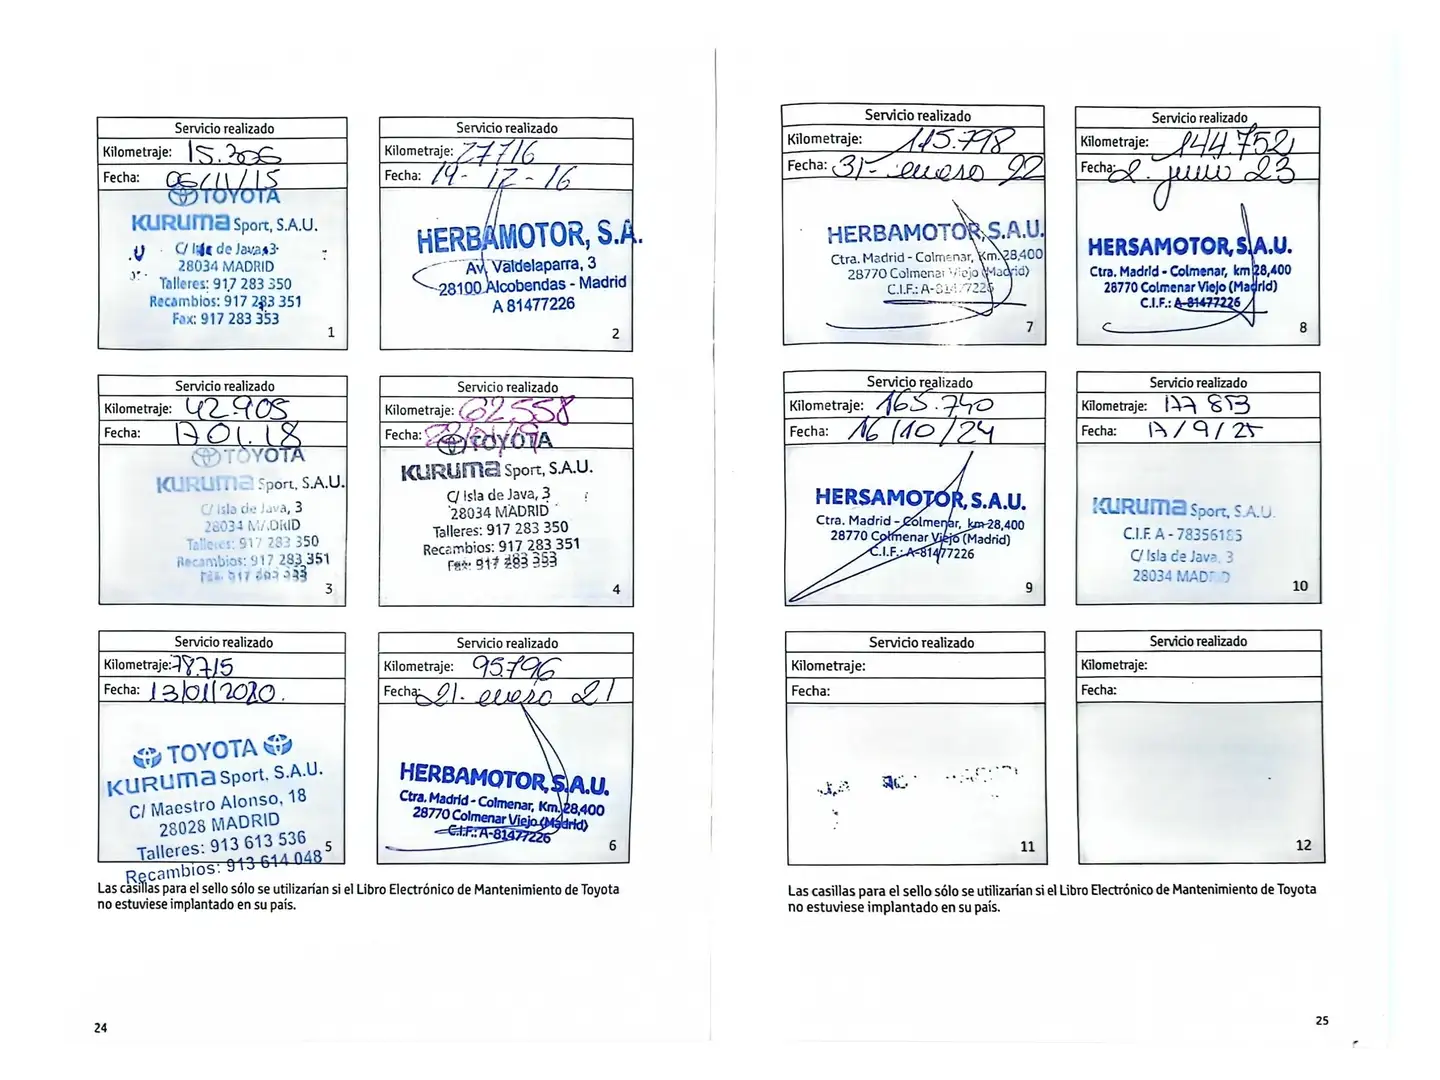 Servicio realizado
Kilometraje: 15.306
Fecha: 06/11/15
TOYOTA
KURUMA Sport, S.A.U.
C/ Isla de Java, 3
28034 MADRID
Talleres: 917 283 350
Recambios: 917 283 351
Fax: 917 283 353
1
Servicio realizado
Kilometraje: 27716
Fecha: 14-12-16
HERBAMOTOR, S.A.
Av. Valdelaparra, 3
28100 Alcobendas - Madrid
A 81477226
2
Servicio realizado
Kilometraje: 42.905
Fecha: 17 01.18
TOYOTA
KURUMA Sport, S.A.U.
C/ Isla de Java, 3
28034 MADRID
Talleres: 917 283 350
Recambios: 917 283 351
3
Servicio realizado
Kilometraje: 62558
Fecha:
TOYOTA
KURUMA Sport, S.A.U.
C/ Isla de Java, 3
28034 MADRID
Talleres: 917 283 350
Recambios: 917 283 351
Fax: 917 283 353
4
Servicio realizado
Kilometraje: 78715
Fecha: 13/01/2020.
TOYOTA
KURUMA Sport, S.A.U.
C/ Maestro Alonso, 18
28028 MADRID
Talleres: 913 613 536
Recambios: 913 614 048
5
Servicio realizado
Kilometraje: 95.796
Fecha: 21. enero 21
HERBAMOTOR, S.A.U.
Ctra. Madrid - Colmenar, Km. 28,400
28770 Colmenar Viejo (Madrid)
C.I.F.: A-81477226
6
Las casillas para el sello sólo se utilizarían si el Libro Electrónico de Mantenimiento de Toyota
no estuviese implantado en su país.
24
Servicio realizado
Kilometraje: 115.798
Fecha: 31- enero 22
HERBAMOTOR, S.A.U.
Ctra. Madrid - Colmenar, Km. 28,400
28770 Colmenar Viejo (Madrid)
C.I.F.: A-81477226
7
Servicio realizado
Kilometraje: 144.752
Fecha: 2. junio 23
HERSAMOTOR, S.A.U.
Ctra. Madrid - Colmenar, km 28,400
28770 Colmenar Viejo (Madrid)
C.I.F.: A-81477226
8
Servicio realizado
Kilometraje: 165.740
Fecha: 16/10/24
HERSAMOTOR, S.A.U.
Ctra. Madrid - Colmenar, km 28,400
28770 Colmenar Viejo (Madrid)
C.I.F.: A-81477226
9
Servicio realizado
Kilometraje: 177 853
Fecha: 17/9/25
KURUMA Sport, S.A.U.
C.I.F. A - 78356185
C/ Isla de Java, 3
28034 MADRID
10
Servicio realizado
Kilometraje:
Fecha:
11
Servicio realizado
Kilometraje:
Fecha:
12
Las casillas para el sello sólo se utilizarían si el Libro Electrónico de Mantenimiento de Toyota
no estuviese implantado en su país.
25